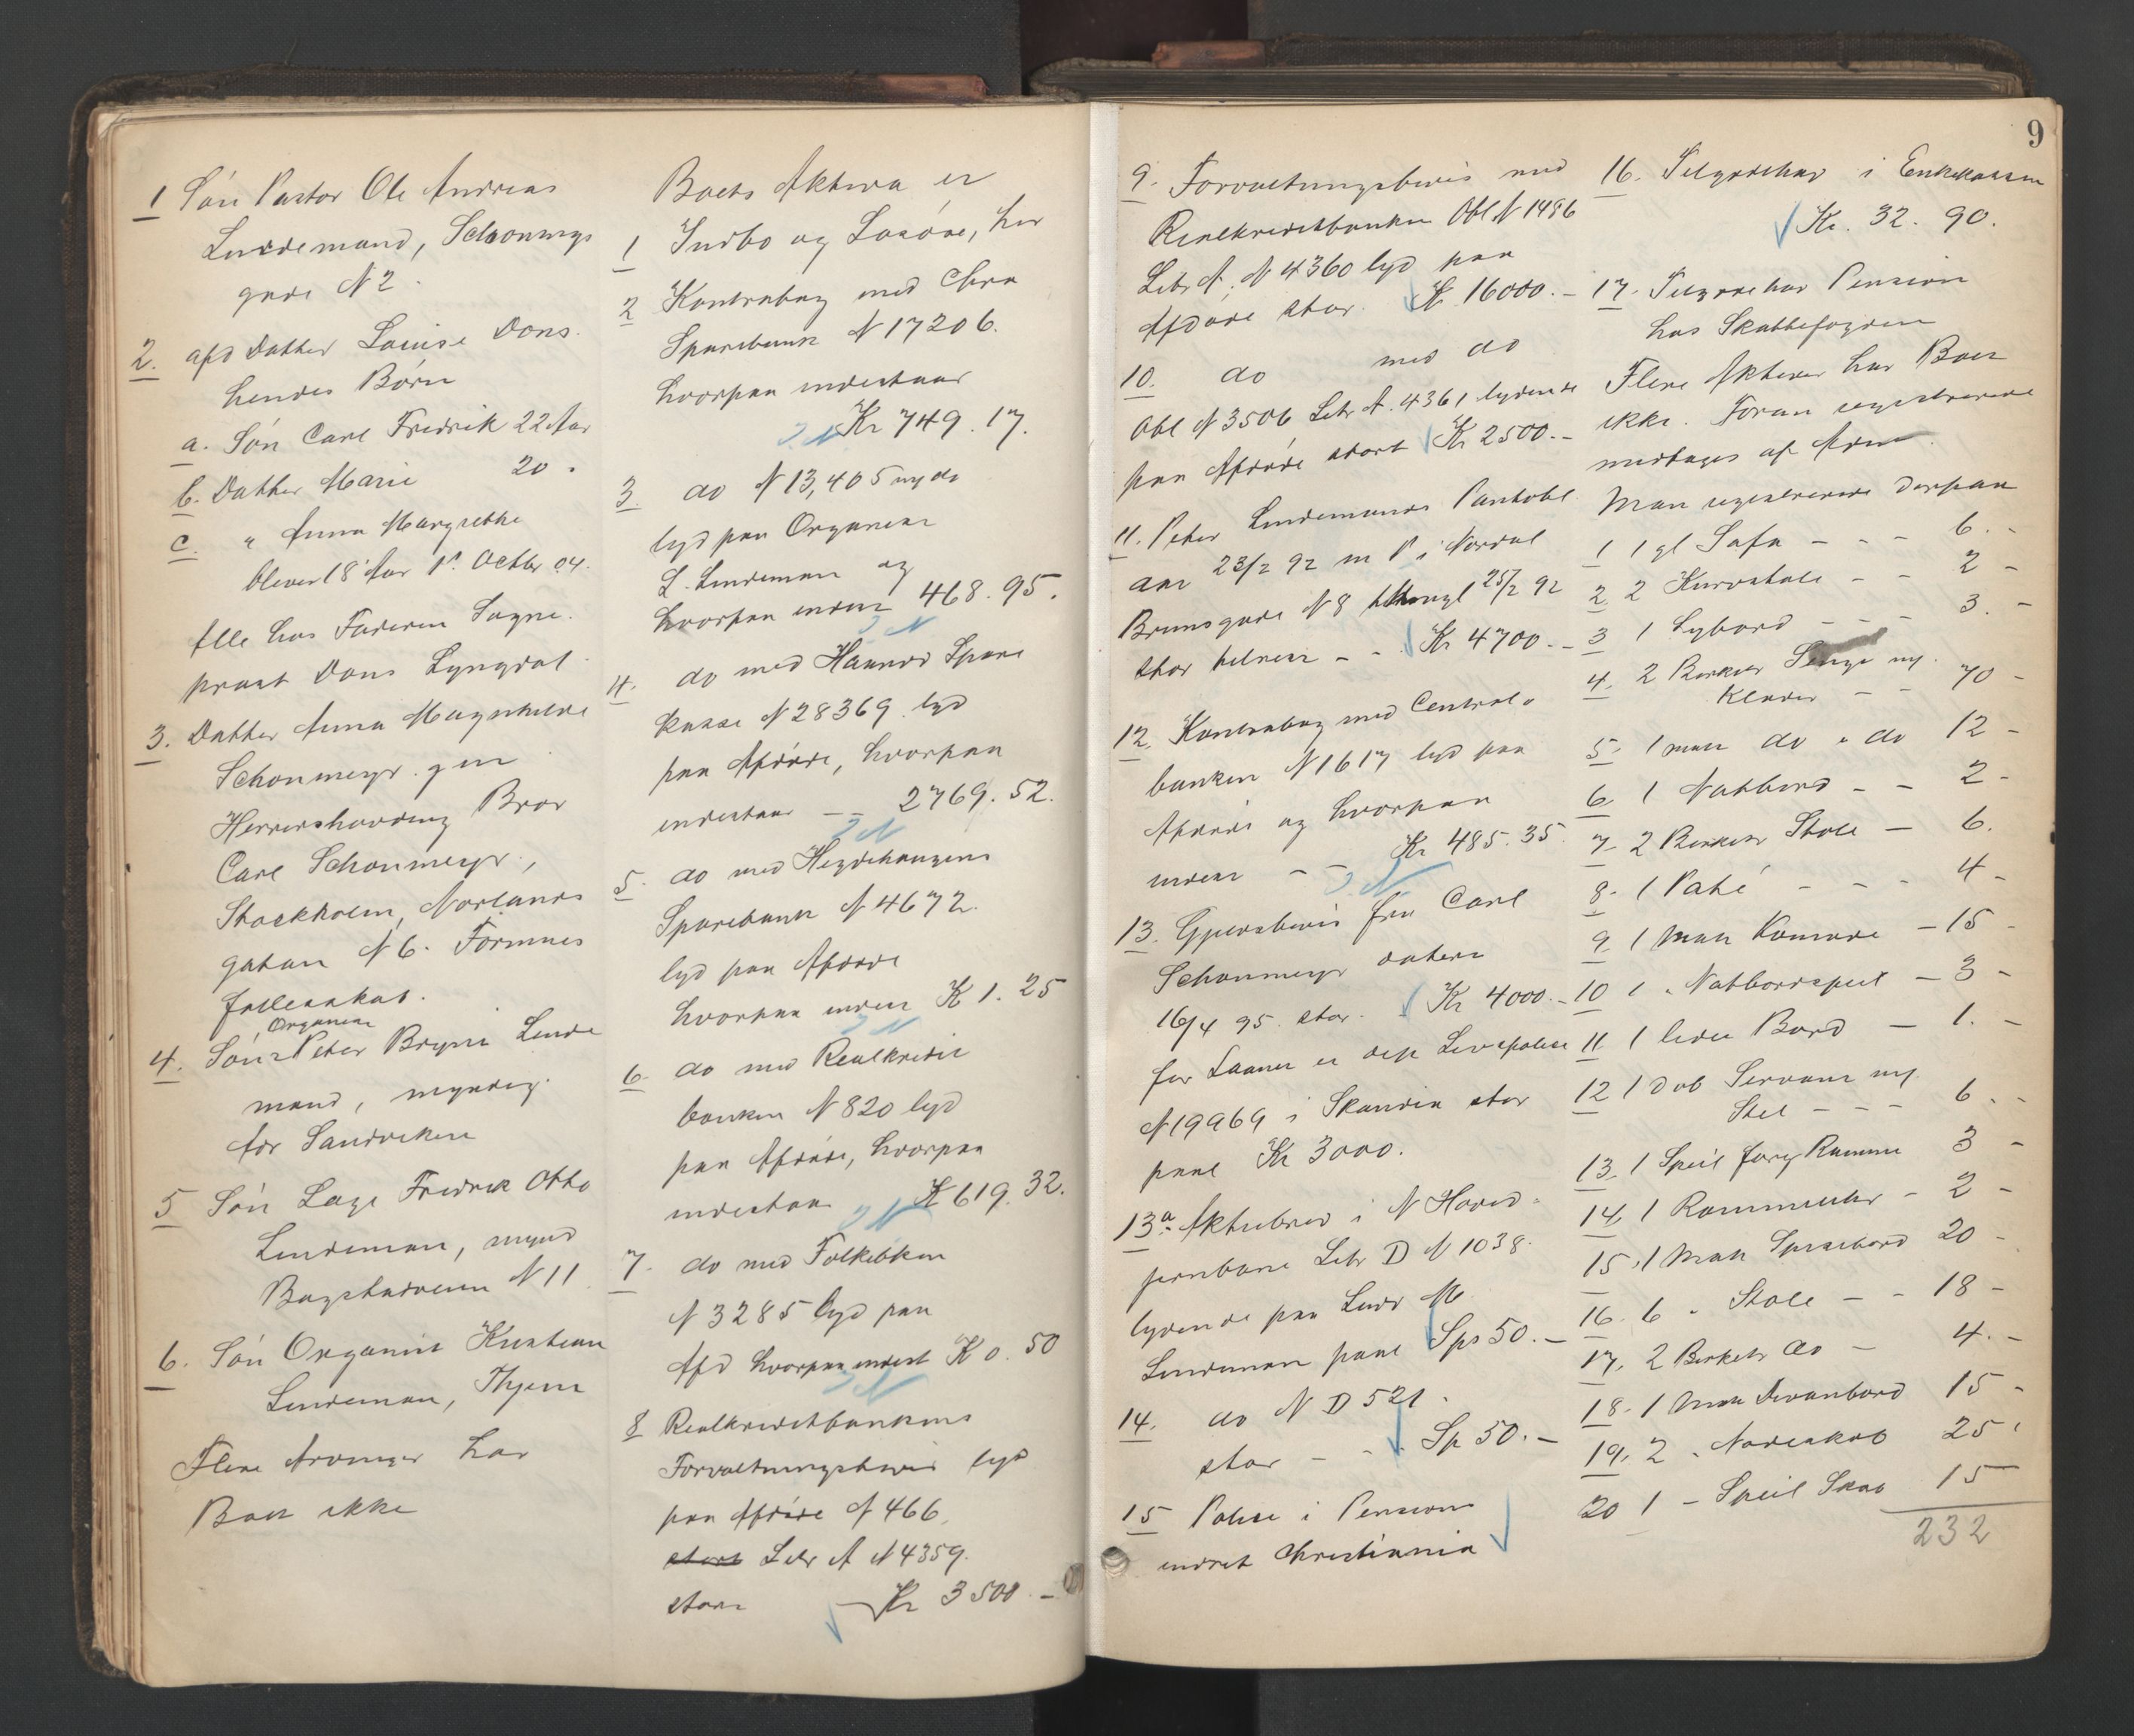 1 Søn Pastor Ole Andreas
Lindemand, Schønings
gade N 2.
2. afd Datter Louise Dons.
hendes Børn
a. Søn Carl Fredrik 22 Aar
b. Datter Marie 20 "
c. " Anna Margrethe
bliver 18 Aar 1. Octbr 04.
Alle hos Faderen Sogne-
præst Dons Lyngdal
3. Datter Anna Magnhilde
Schønmeyr gm
Herredshøvding Bror
Carl Schønmeyr,
Stockholm, Norlands
gatan N 6. Formues
fællesskab.
Organist
4. Søn Peter Brynie Linde
mand, myndig.
Adr Sandviken
5 Søn Lage Fredrik Otto
Lindeman, mynd
Bogstadveien N 11
6. Søn Organist Kristian
Lindeman, Thjem
Flere Arvinger har
Boet ikke
Boets Aktiva er
1 Indbo og Løsøre, her
2 Kontrabog med Chra
Sparebank N 17206.
hvorpaa indestaar
Kr 749.17.
3 do N 13,405 ny do
lyd paa Organist
L. Lindeman og
hvorpaa indest 468.95.
4. do med Hammers Spare
kasse N 28369 lyd
paa Afdøde, hvorpaa
indestaar -- 2769.52.
5. do med Hegdehaugens
Sparebank N 4672.
lyd paa Afdøde
hvorpaa indest K 1.25
6. do med Realkredit
banken N 820 lyd
paa Afdøde, hvorpaa
indestaar K 619.32.
7. do med Folkebken
N 3285 lyd paa
Afd hvorpaa indest K 0.50
8 Realkreditbankens
Forvaltningsbevis lyd
paa Afdøde N 466,
stort Litr A N 4359.
stort Kr 3500.-
9
9. Forvaltningsbevis med
Realkreditbanken Obl N 1486
Litr A. N 4360 lyd paa
Afdøde stor. Kr 16000.-
10. do med do
Obl N 3506 Litr A. 4361 lydende
paa Afdøde stort Kr 2500.-
11. Peter Lindemands Pantobl
dat 23/2 92 m P i Nordal
Brunsgade N 8 thingl 25/2 92
stor tilrest - - Kr 4700.-
12. Kontrabog med Central-
banken N 1617 lyd paa
Afdøde og hvorpaa
indest - - Kr 485.35
13. Gjældsbevis fra Carl
Schønmeyr datert
16/4 95. stor. Kr 4000.-
for Laanet er dep Livspolice
N 19969 i Skandia stor
paal Kr 3000.
13a Aktiebrev i N Hoved-
jernbane Litr D N 1038.
lydende paa Ludv M.
Lindeman paal Sps 50.-
14. do N D 521.
stor - - Sp 50.-
15 Police i Pensions
indret Christiania
16. Tilgodehav i Enkekassen
Kr. 32.90.
17. Tilgodehav Pension
hos Skattefogden
Flere Aktiver har Boet
ikke. Foran registrerede
medtages af Arm
Man registrerede derpaa
1 1 gl Sofa - - - 6.-
2 2 Kurvstole - - 2 -
3 1 Sybord - - - 3.-
4. 2 Birkets Senge mg.
Klæder - - 70 -
5. 1 mah do " do 12 -
6 1 Natbord - - 2 -
7 2 Birkets Stole - 6.
8. 1 Paté - - - 4 -
9 1 Mah Komode - 15 -
10 1 " Natbordspeil - 3 -
11 1 lidet Bord - 1. -
12 1 dob Servant mg.
Stel - - - 6. -
13. 1 Speil forg Ramme 3 -
14. 1 Rammeuhr - 2 -
15. 1 Mah Spisebord 20 -
16. 6 " Stole - - 18 -
17. 2 Birkets do - 4. -
18. 1 Mah Divanbord 15 -
19. 2 " Nodeskab 25 "
20 1 - Speil Skab 15
232